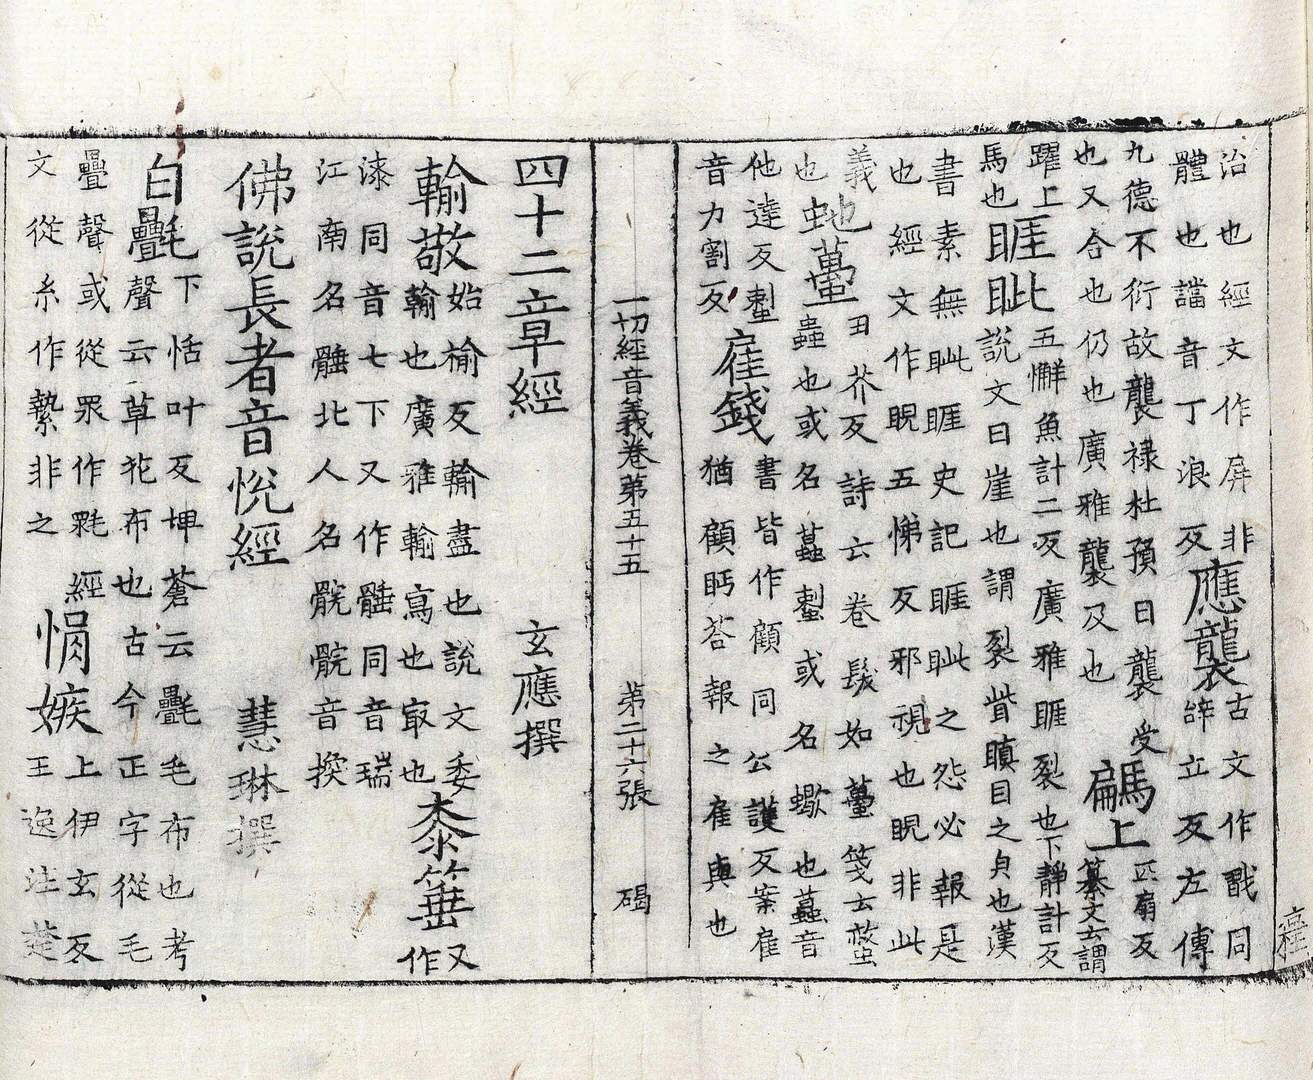 治也經文作屏非
體也譡音丁浪反
應襲
古文作戬同
辝立反左傳
九德不衍故襲禄杜預曰襲受
也又合也仍也廣雅襲及也
騗上
匹扇反
纂文云謂
躍上
馬也
睚眦
五懈魚計二反廣雅睚裂也下靜計反
說文曰崖也謂裂眥瞋目之皃也漢
書素無眦睚史記睚眦之怨必報是
也經文作睨五悌反邪視也睨非此
義
也
虵蠆
丑芥反詩云卷髮如蠆箋云螫
蟲也或名蠚蜇或名蠍也蠚音
他達反蜇
音力割反
雇錢
書皆作顧同公護反案雇
猶顧眄荅報之雇與也
一切經音義卷第五十五 第二十六張 碣
四十二章經 玄應撰
輸敬
始榆反輸盡也說文委
輸也廣雅輸寫也㝡也
桼箠
又
作
漆同音七下又作䯝同音瑞
江南名䯝北人名髖髖音換
佛說長者音悅經 慧琳撰
白㲲
下恬叶反坤蒼云㲲毛布也考
聲云草花布也古今正字從毛
疊聲或從眾作㲲經
文從糸作縶非之
悁嫉
上伊玄反
王逸注楚